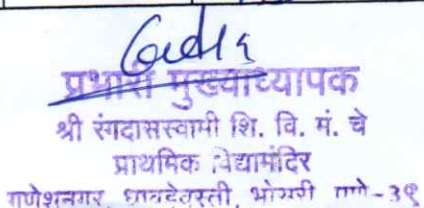 प्रभारी मुख्याध्यापक
श्री रंगदासस्वामी शि. वि. मं. चे
प्राथमिक विद्यामंदिर
गणेशनगर, धावडेवस्ती, भोसरी पुणे-३९